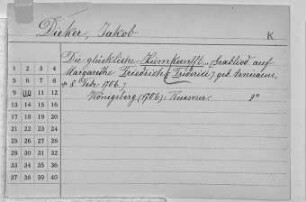 Dicker, Jakob
K
Die glückliche Heimkunfft... Grablied auf
Margarethe Friedrich (Friderici) geb.
+ 8. Febr. 1706.
Königsberg (1706): Reusner. 1°
1 2 3 4
5 6 7 8
9 10 11 12
13 14 15 16
17 18 19 20
21 22 23 24
25 26 27 28
29 30 31 32
33 34 35 36
37 38 39 40